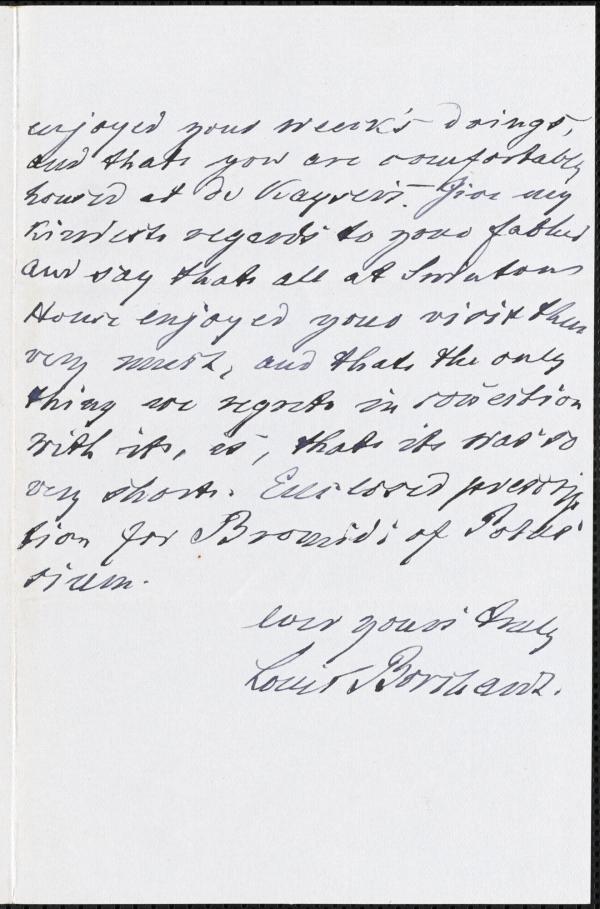 enjoyed your week's doings,
and that you are comfortably
housed at de Keyser's. Give my
kindest regards to your father
and say that all at Swinton
House enjoyed your visit then
very much, and that the only
thing we regret in connection
with it, is, that it was so
very short. Enclosed prescrip
tion for Bromide of Potas
sium.
Ever yours truly
Louis Borchardt.